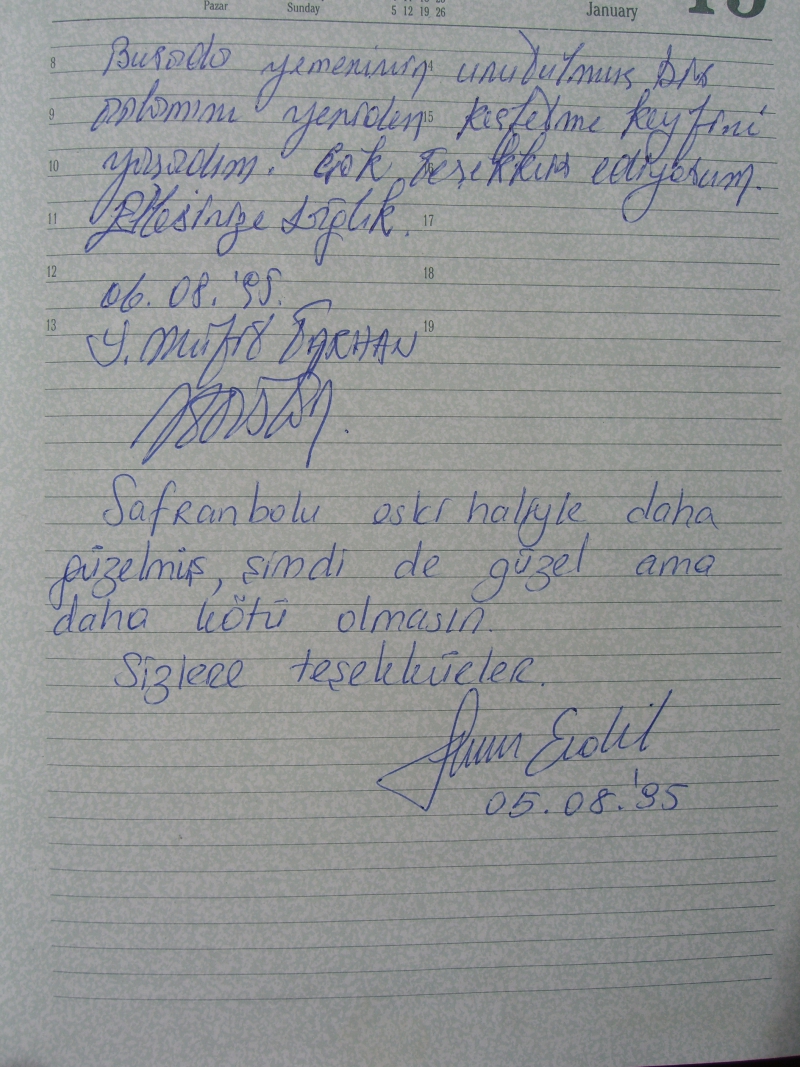 Pazar Sunday 5 12 19 26 January 15
8 Burada yemeninin unudulmuş bir
9 anlamını yeniden 15 keşfetme keyfini
10 yaşadım. Çok teşekkür ediyorum.
11 Ellesinize sağlık. 17
12 06.08.'95. 18
13 Y. Müfit TARHAN 19
Safranbolu eski haliyle daha
güzelmiş, şimdi de güzel ama
daha kötü olmasın.
Sizlere teşekkürler.
Erdil
05.08.'95